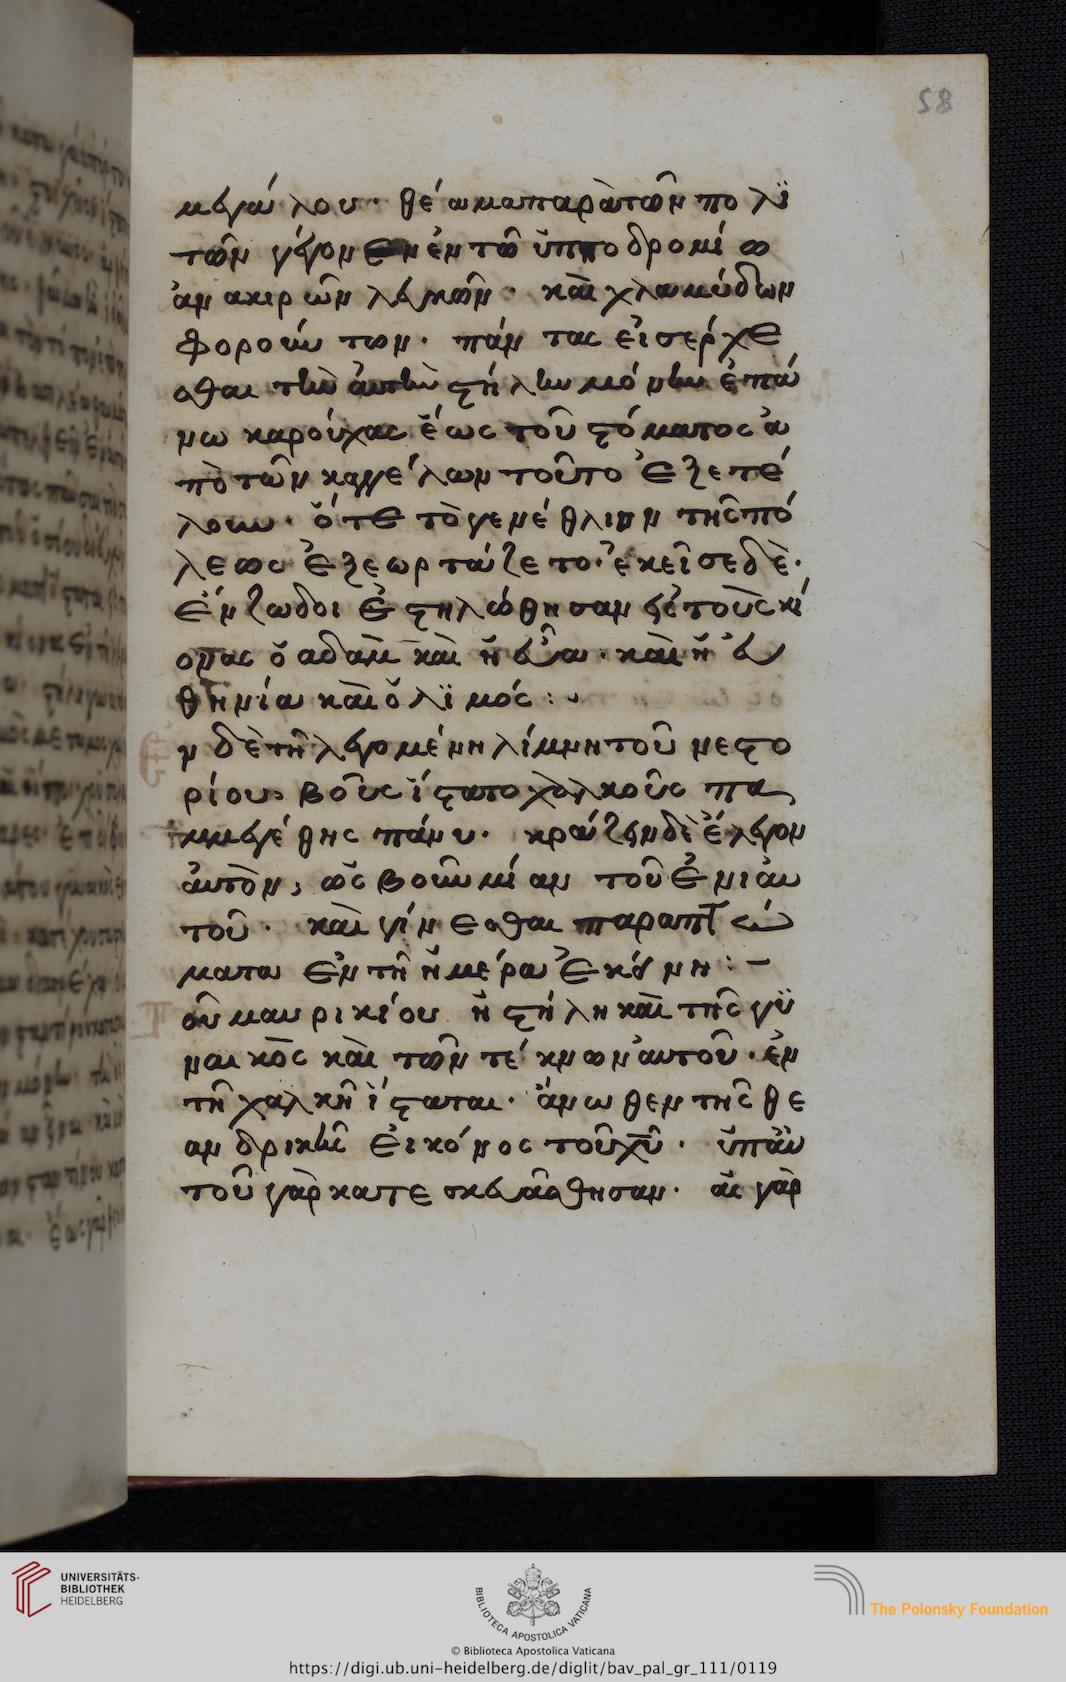 58
μεγάλου· θέαμα παρὰ τῶν πολϊ
τῶν γέγονεν ἐν τῶ ϊπποδρομίω
ἀπ ακιρ ὧν λευκῶν· καὶ χλαμύδων
φορούντων· πάντας εἰσέρχε
σθαι τὴν ἀυτὴν στήλην μόνην ἐπά
νω καρούχας ἕως τοῦ στόματος ἀ
πὸ τῶν καγγέλων τοῦτο ἐξετέ
λουν· ὅτε τὸ γενέθλιον τῆς πό
λεως ἐξεωρτάζετο· ἐκεῖσε δὲ·
ἔνζωδοι ἐστηλώθησαν εἰς τοὺς κί
ονας ὁ αδὰμ καὶ ἡ εὔα· καὶ ἡ εὐ
θηνία καὶ ὁ λϊμός:
Ἐν δὲ τῆ λεγομένη λίμνη τοῦ νεστο
ρίου βοῦς ἵστατο χαλκοῦς πα
μμεγέθης πάνυ· κράζειν δὲ ἔλεγον
ἀυτὸν, ὡς βοῦν μίαν τοῦ ἐνιαυ
τοῦ· καὶ γίνεσθαι παραπτώ
ματα ἐν τῆ ἡμέρα ἐκείνη:—
Τοῦ μαυρικίου ἡ στήλη καὶ τῆς γϋ
ναικὸς καὶ τῶν τέκνων αὐτοῦ· ἐν
τῆ χαλκῆ ἵσταται· ἄνωθεν τῆς θε
ανδρικῆς εἰκόνος τοῦ χυ· ὑπ' ἀυ
τοῦ γὰρ κατεσκευάσθησαν· ἃς γὰρ
UNIVERSITÄTS-
BIBLIOTHEK
HEIDELBERG
BIBLIOTECA APOSTOLICA VATICANA
The Polonsky Foundation
© Biblioteca Apostolica Vaticana
https://digi.ub.uni-heidelberg.de/diglit/bav_pal_gr_111/0119